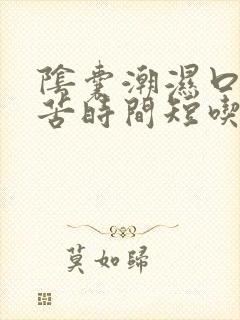 陰囊潮濕口
苦時間短喫
莫如歸